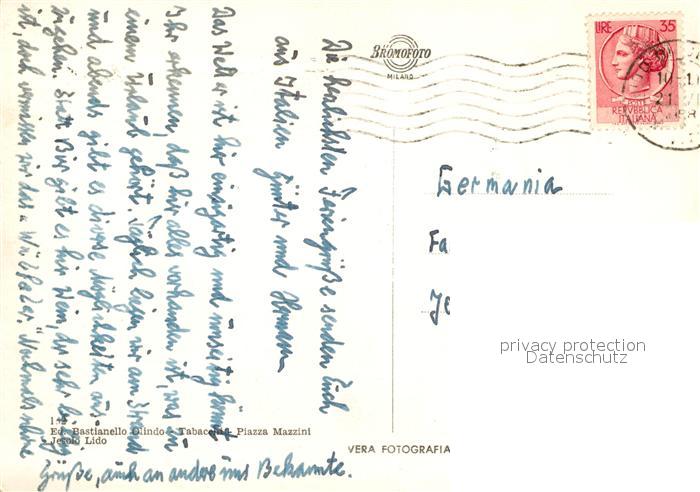 Die herzlichsten Feriengrüße senden Euch
aus Italien Günter und
Das Wetter ist hier einzigartig und
Ihr erkennen, daß hier alles vorhanden ist, was zu
einem Urlaub gehört. Täglich liegen wir am Strand
und abends gibt es diverse Möglichkeiten aus-
zugehen. Statt Bier gibt es hier Wein, der sehr
ist, doch vermissen wir das Nochmals
Grüße, auch an andere uns Bekannte.
BROMOFOTO
MILANO
LIRE 35
REPVBBLICA
ITALIANA
Germania
Fa
Je
privacy protection
Datenschutz
Ed. Bastianello Olindo - Tabacchi - Piazza Mazzini
Jesolo Lido
VERA FOTOGRAFIA